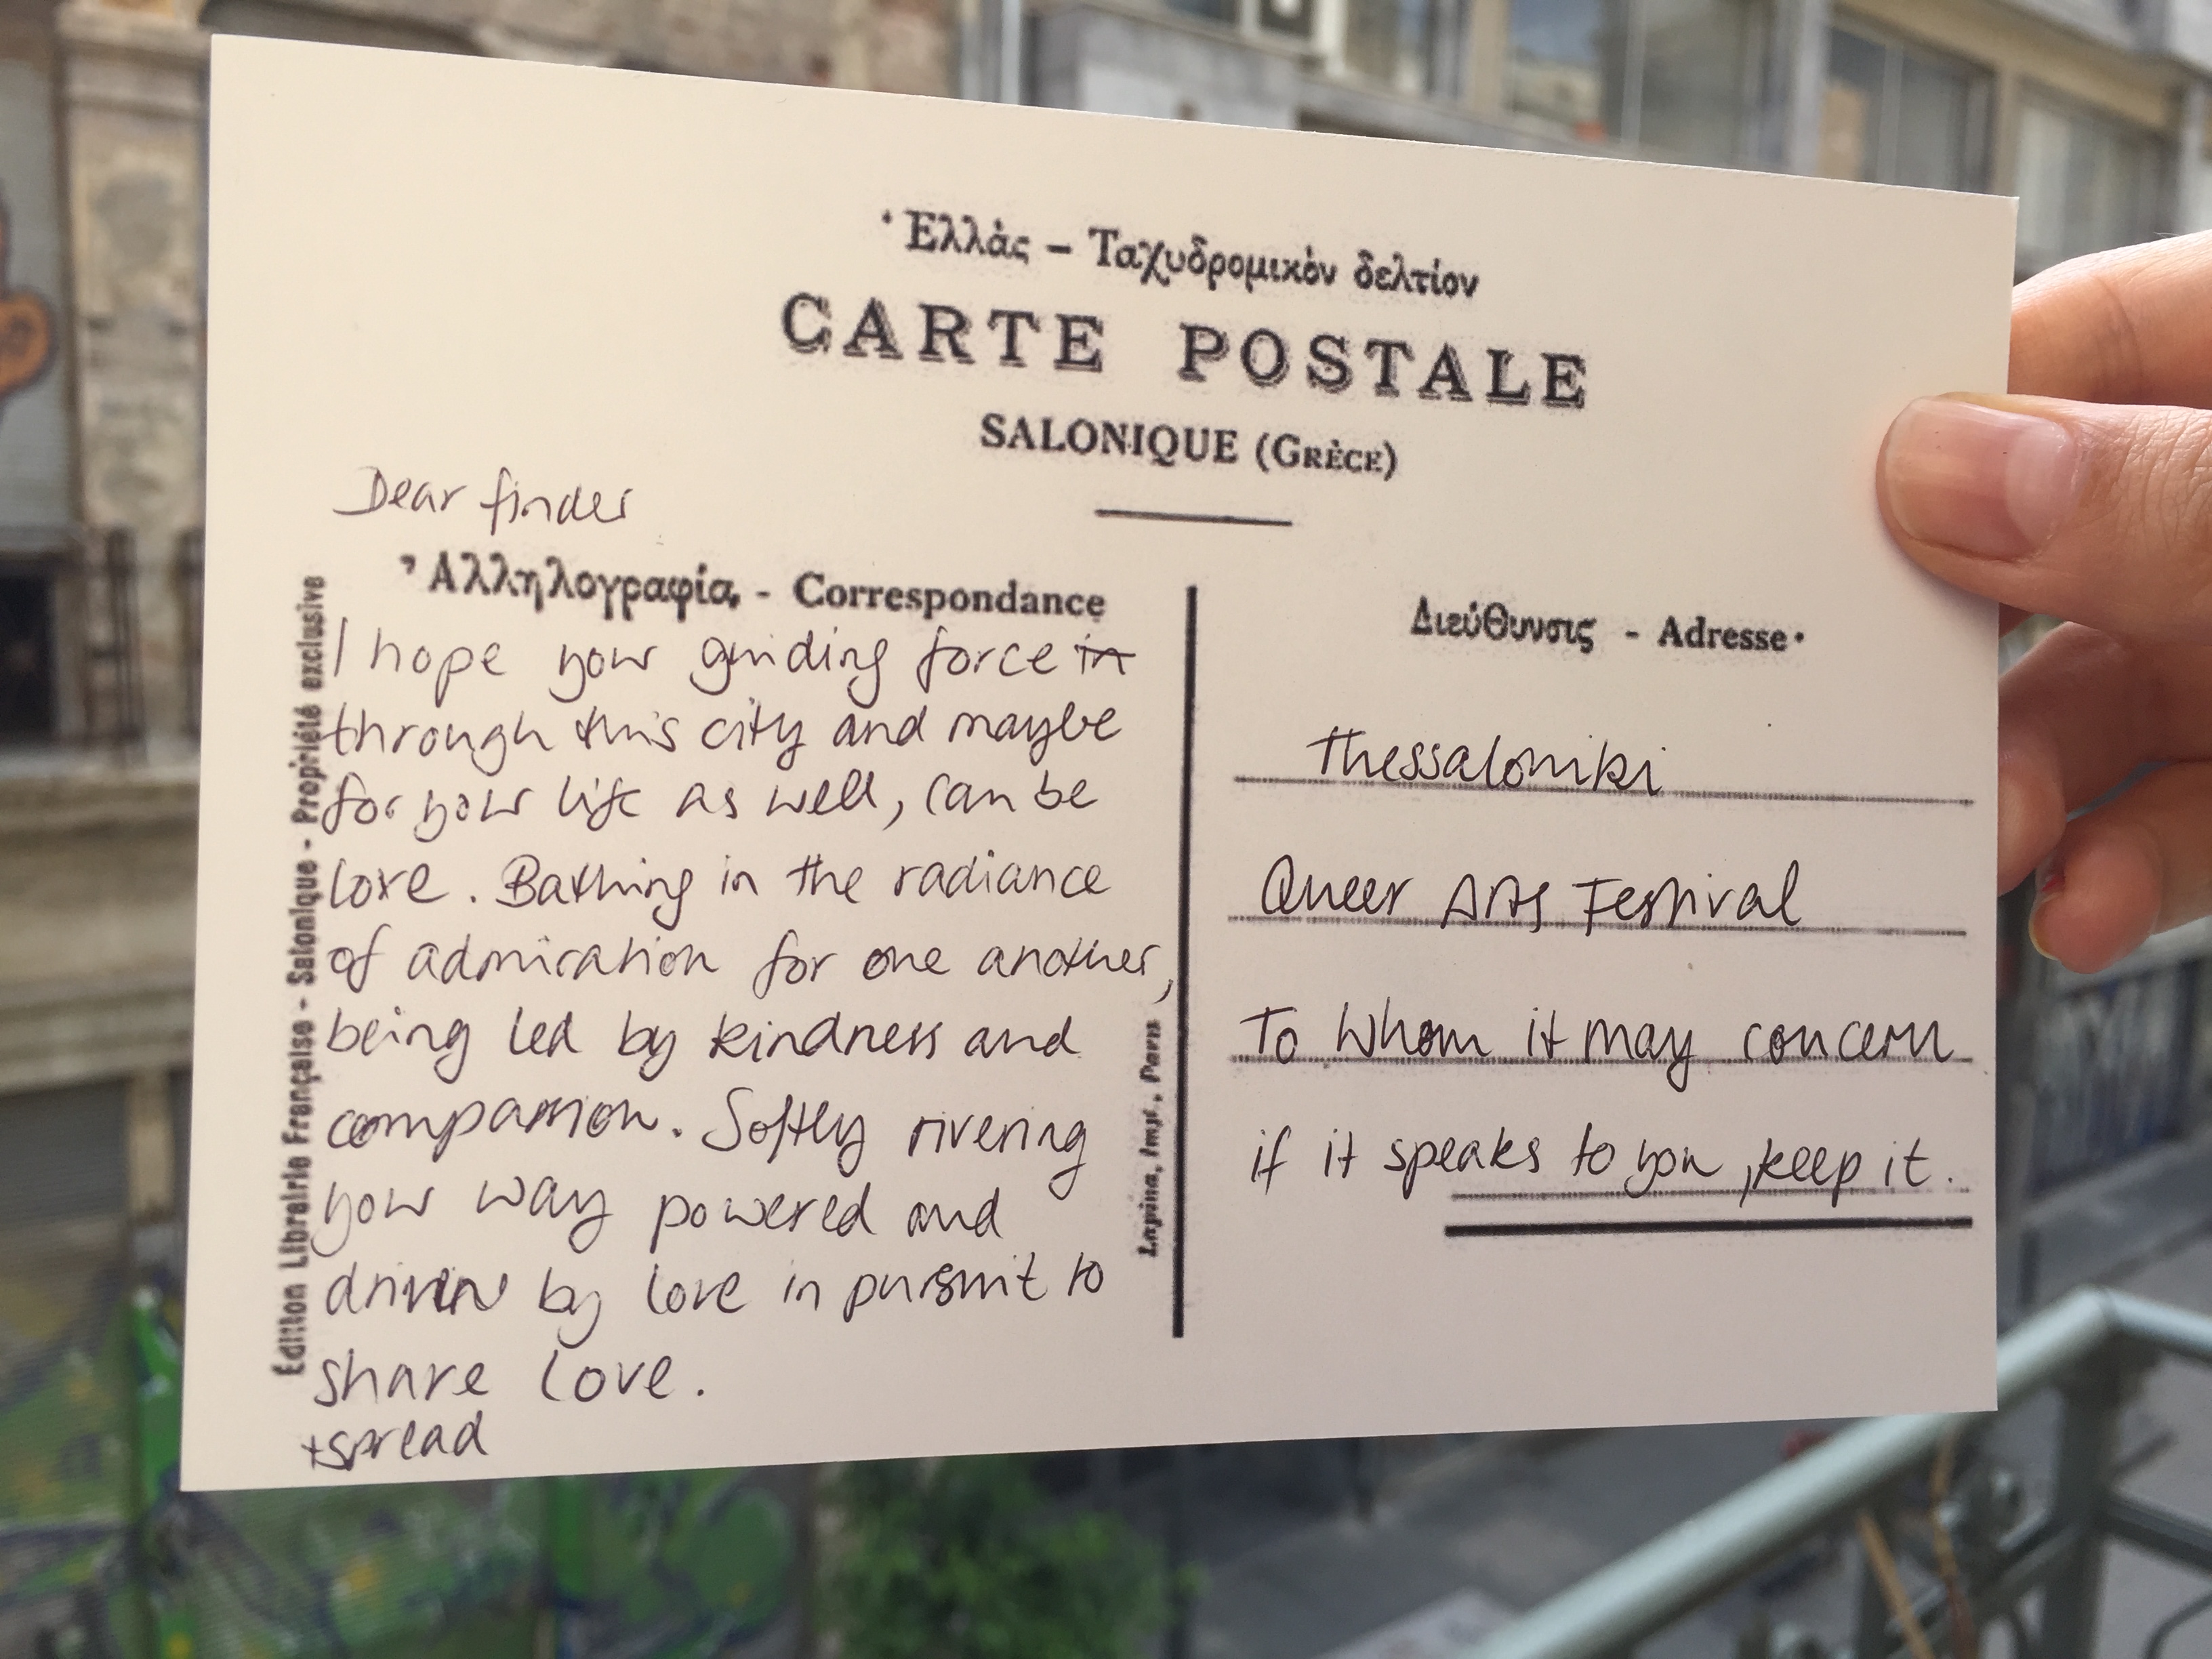 Ἑλλὰς – Ταχυδρομικὸν δελτίον
CARTE POSTALE
SALONIQUE (GRÈCE)
Dear finder
Ἀλληλογραφία - Correspondance
I hope your guiding force in
through this city and maybe
for your life as well, can be
love. Bathing in the radiance
of admiration for one another,
being led by kindness and
compassion. Softly rivering
your way powered and
driven by love in pursuit to
share love.
+spread
Διεύθυνσις - Adresse
Thessaloniki
Queer Arts Festival
To whom it may concern
if it speaks to you, keep it.
Edition Librairie Française - Salonique - Propriété exclusive
Lapina, Imp., Paris